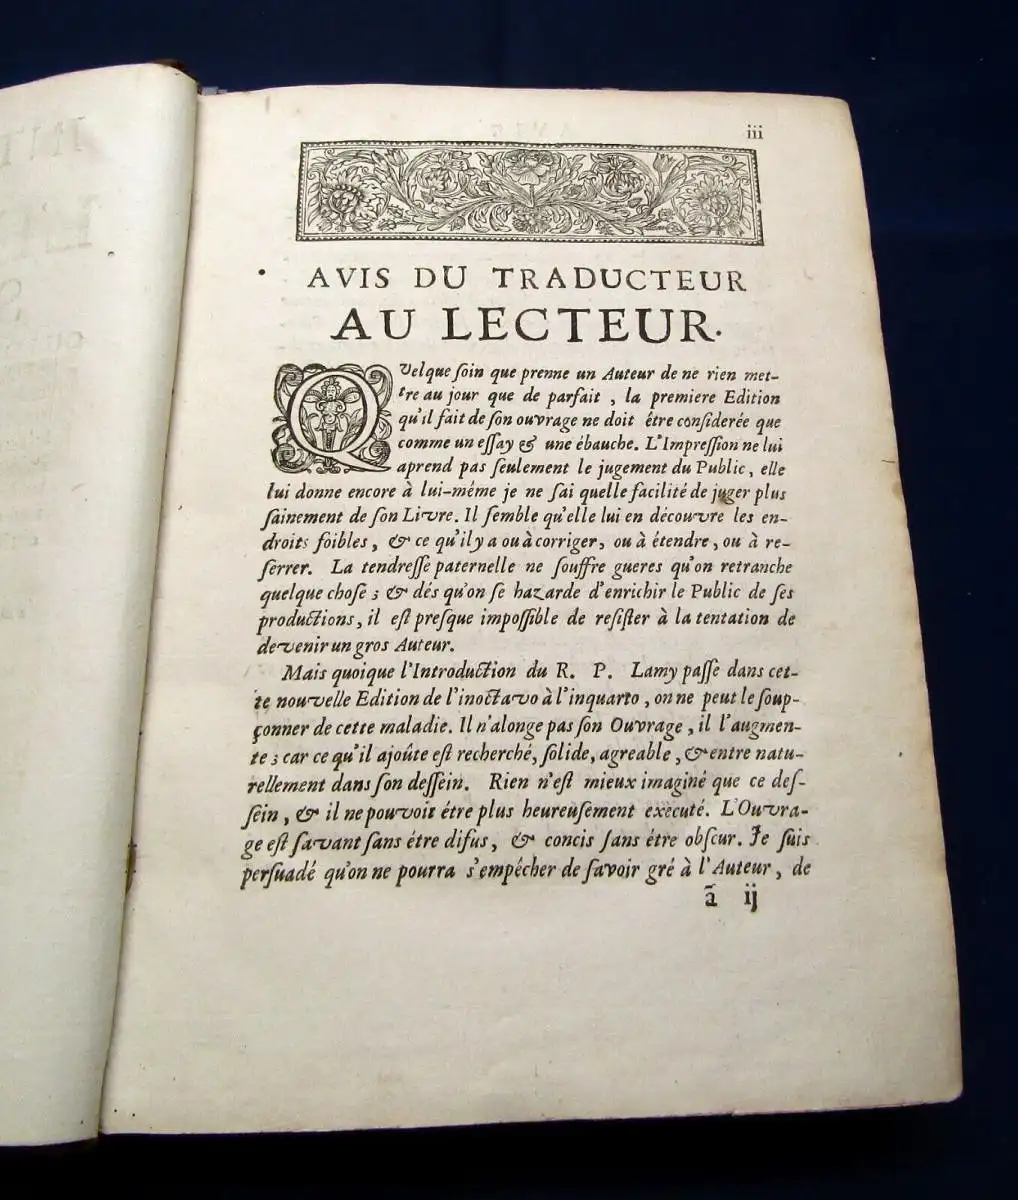 iii
AVIS DU TRADUCTEUR
AU LECTEUR.
QVelque ſoin que prenne un Auteur de ne rien met-
tre au jour que de parfait, la premiere Edition
qu'il fait de ſon ouvrage ne doit être conſiderée que
comme un eſſay & une ébauche. L'Impreſſion ne lui
aprend pas ſeulement le jugement du Public, elle
lui donne encore à lui-méme je ne ſai quelle facilité de juger plus
ſainement de ſon Livre. Il ſemble qu'elle lui en découvre les en-
droits foibles, & ce qu'il y a ou à corriger, ou à étendre, ou à re-
ſerrer. La tendreſſe paternelle ne ſouffre gueres qu'on retranche
quelque choſe ; & dés qu'on ſe hazarde d'enrichir le Public de ſes
productions, il eſt preſque impoſſible de reſiſter à la tentation de
devenir un gros Auteur.
Mais quoique l'Introduction du R. P. Lamy paſſe dans cet-
te nouvelle Edition de l'inoctavo à l'inquarto, on ne peut le ſoup-
çonner de cette maladie. Il n'alonge pas ſon Ouvrage, il l'augmen-
te ; car ce qu'il ajoûte eſt recherché, ſolide, agreable, & entre natu-
rellement dans ſon deſſein. Rien n'eſt mieux imaginé que ce deſ-
ſein, & il ne pouvoit étre plus heureuſement exècuté. L'Ouvra-
ge eſt ſavant ſans étre difus, & concis ſans étre obſcur. Je ſuis
perſuadé qu'on ne pourra s'empécher de ſavoir gré à l'Auteur, de
ã ij